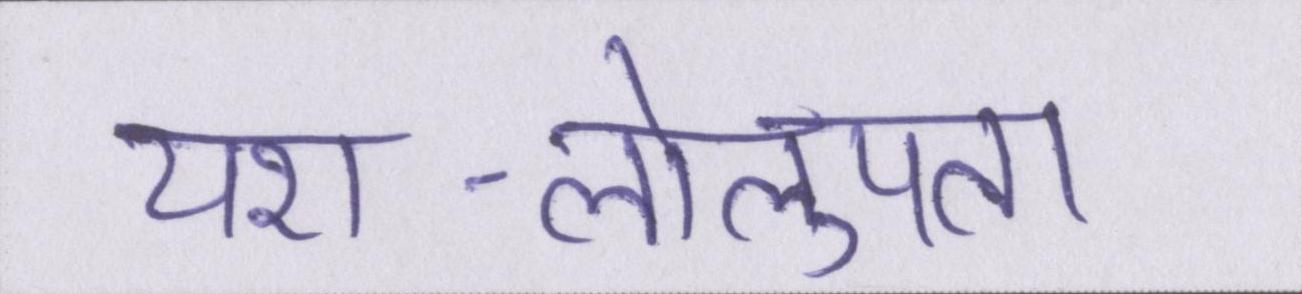 यश-लोलुपता